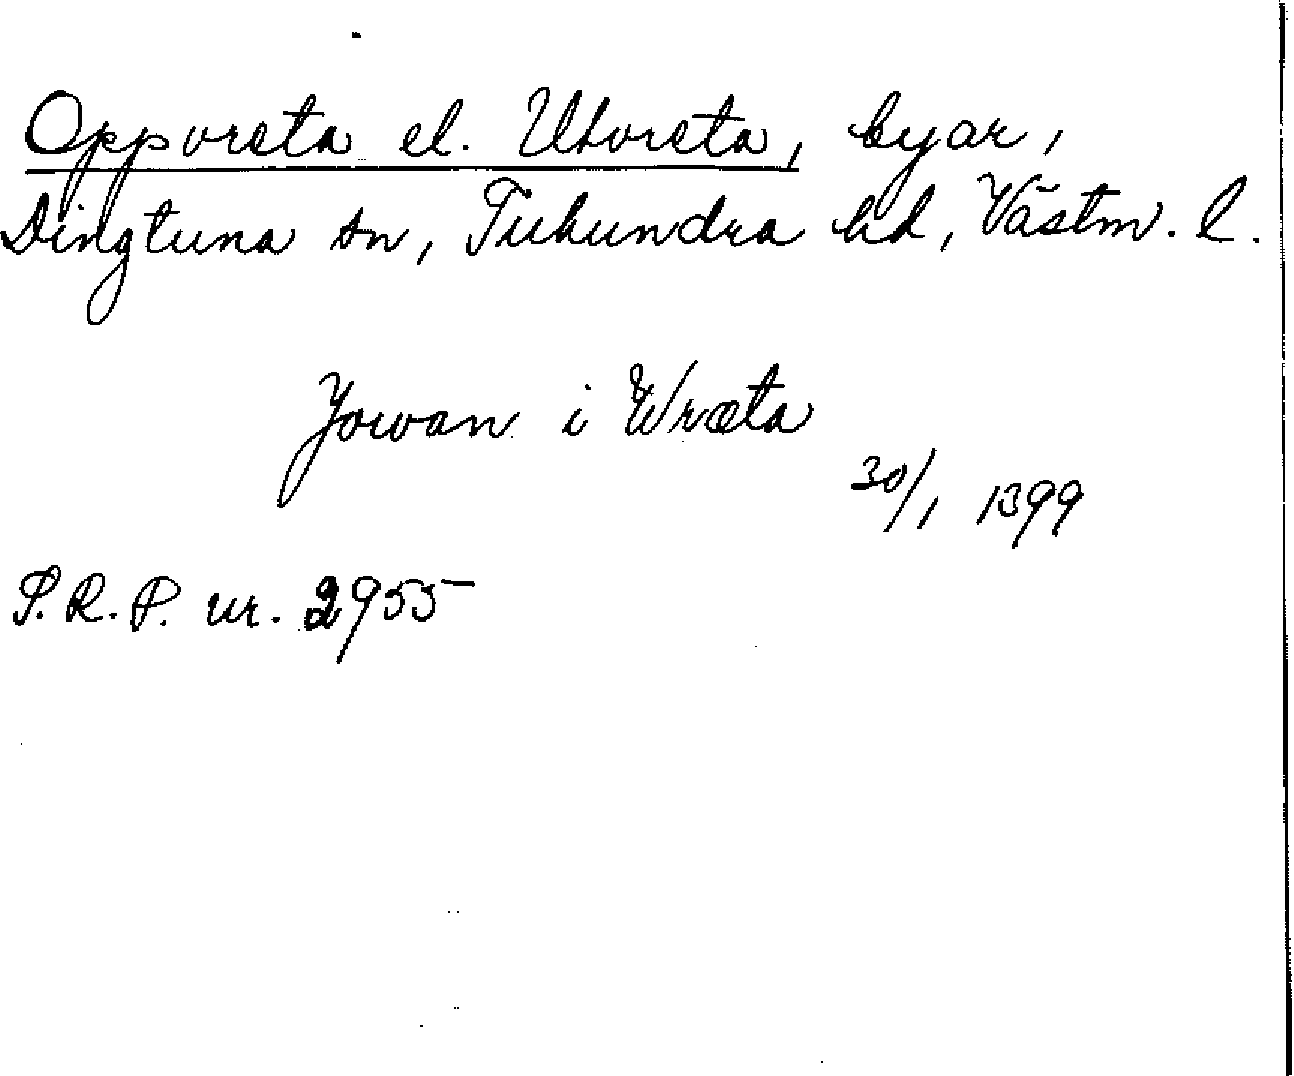 Oppvreta el. Utvreta, byar,
Dingtuna sn, Tuhundra hd, Västm. l.
Jowan i Wræta
30/1 1399
S.R.P. nr. 2955